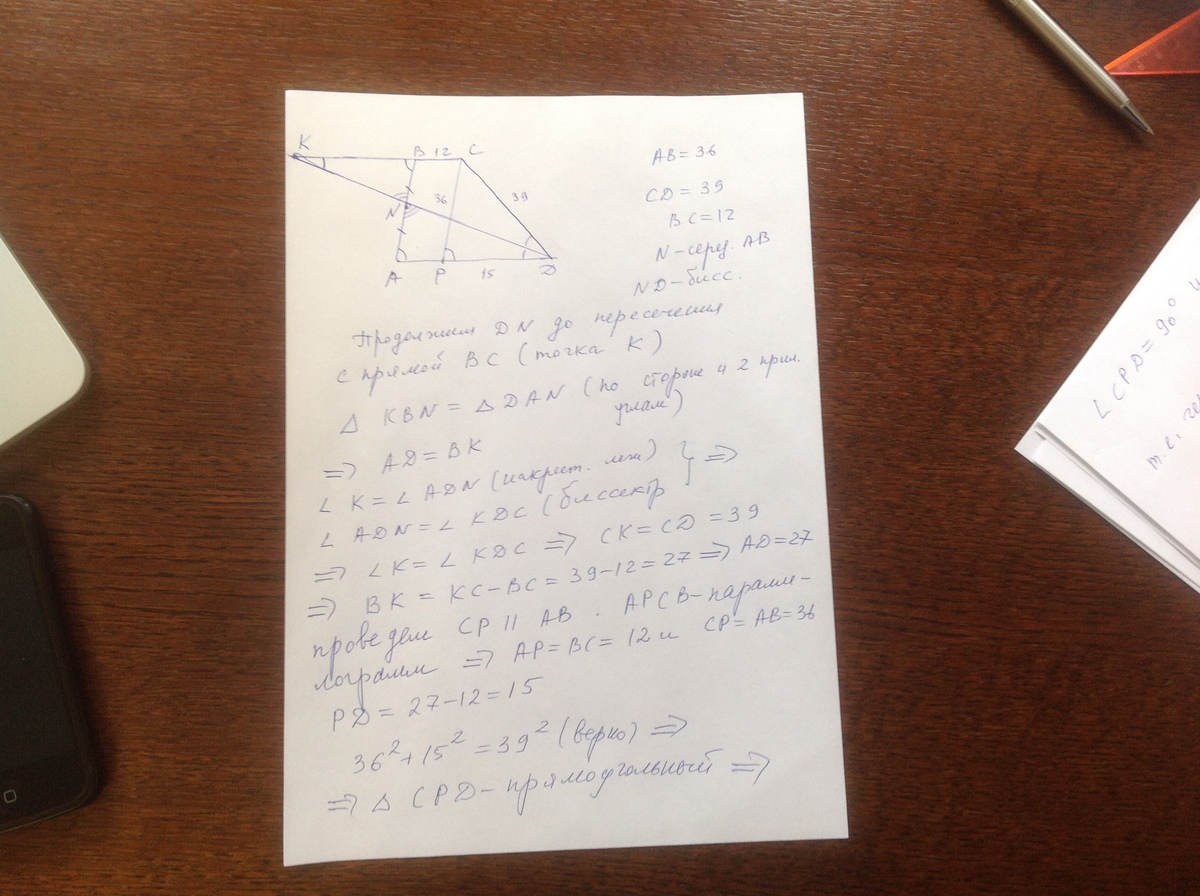 K B 12 C
N 36 39
A P 15 D
AB = 36
CD = 39
BC = 12
N - серед. AB
ND - бисс.
Продолжим DN до пересечения
с прямой BC (точка K)
△ KBN = △ DAN (по стороне и 2 прил.
углам)
⇒ AD = BK
∠ K = ∠ ADN (накрест. лежа) } ⇒
∠ ADN = ∠ KDC (биссектр
⇒ ∠K = ∠ KDC ⇒ CK = CD = 39
⇒ BK = KC - BC = 39 - 12 = 27 ⇒ AD = 27
проведем CP || AB . APCB - паралле-
лограмм ⇒ AP = BC = 12 и CP = AB = 36
PD = 27 - 12 = 15
36² + 15² = 39² (верно) ⇒
⇒ △ CPD - прямоугольный ⇒
∠ CPD = 90° и
т.е.